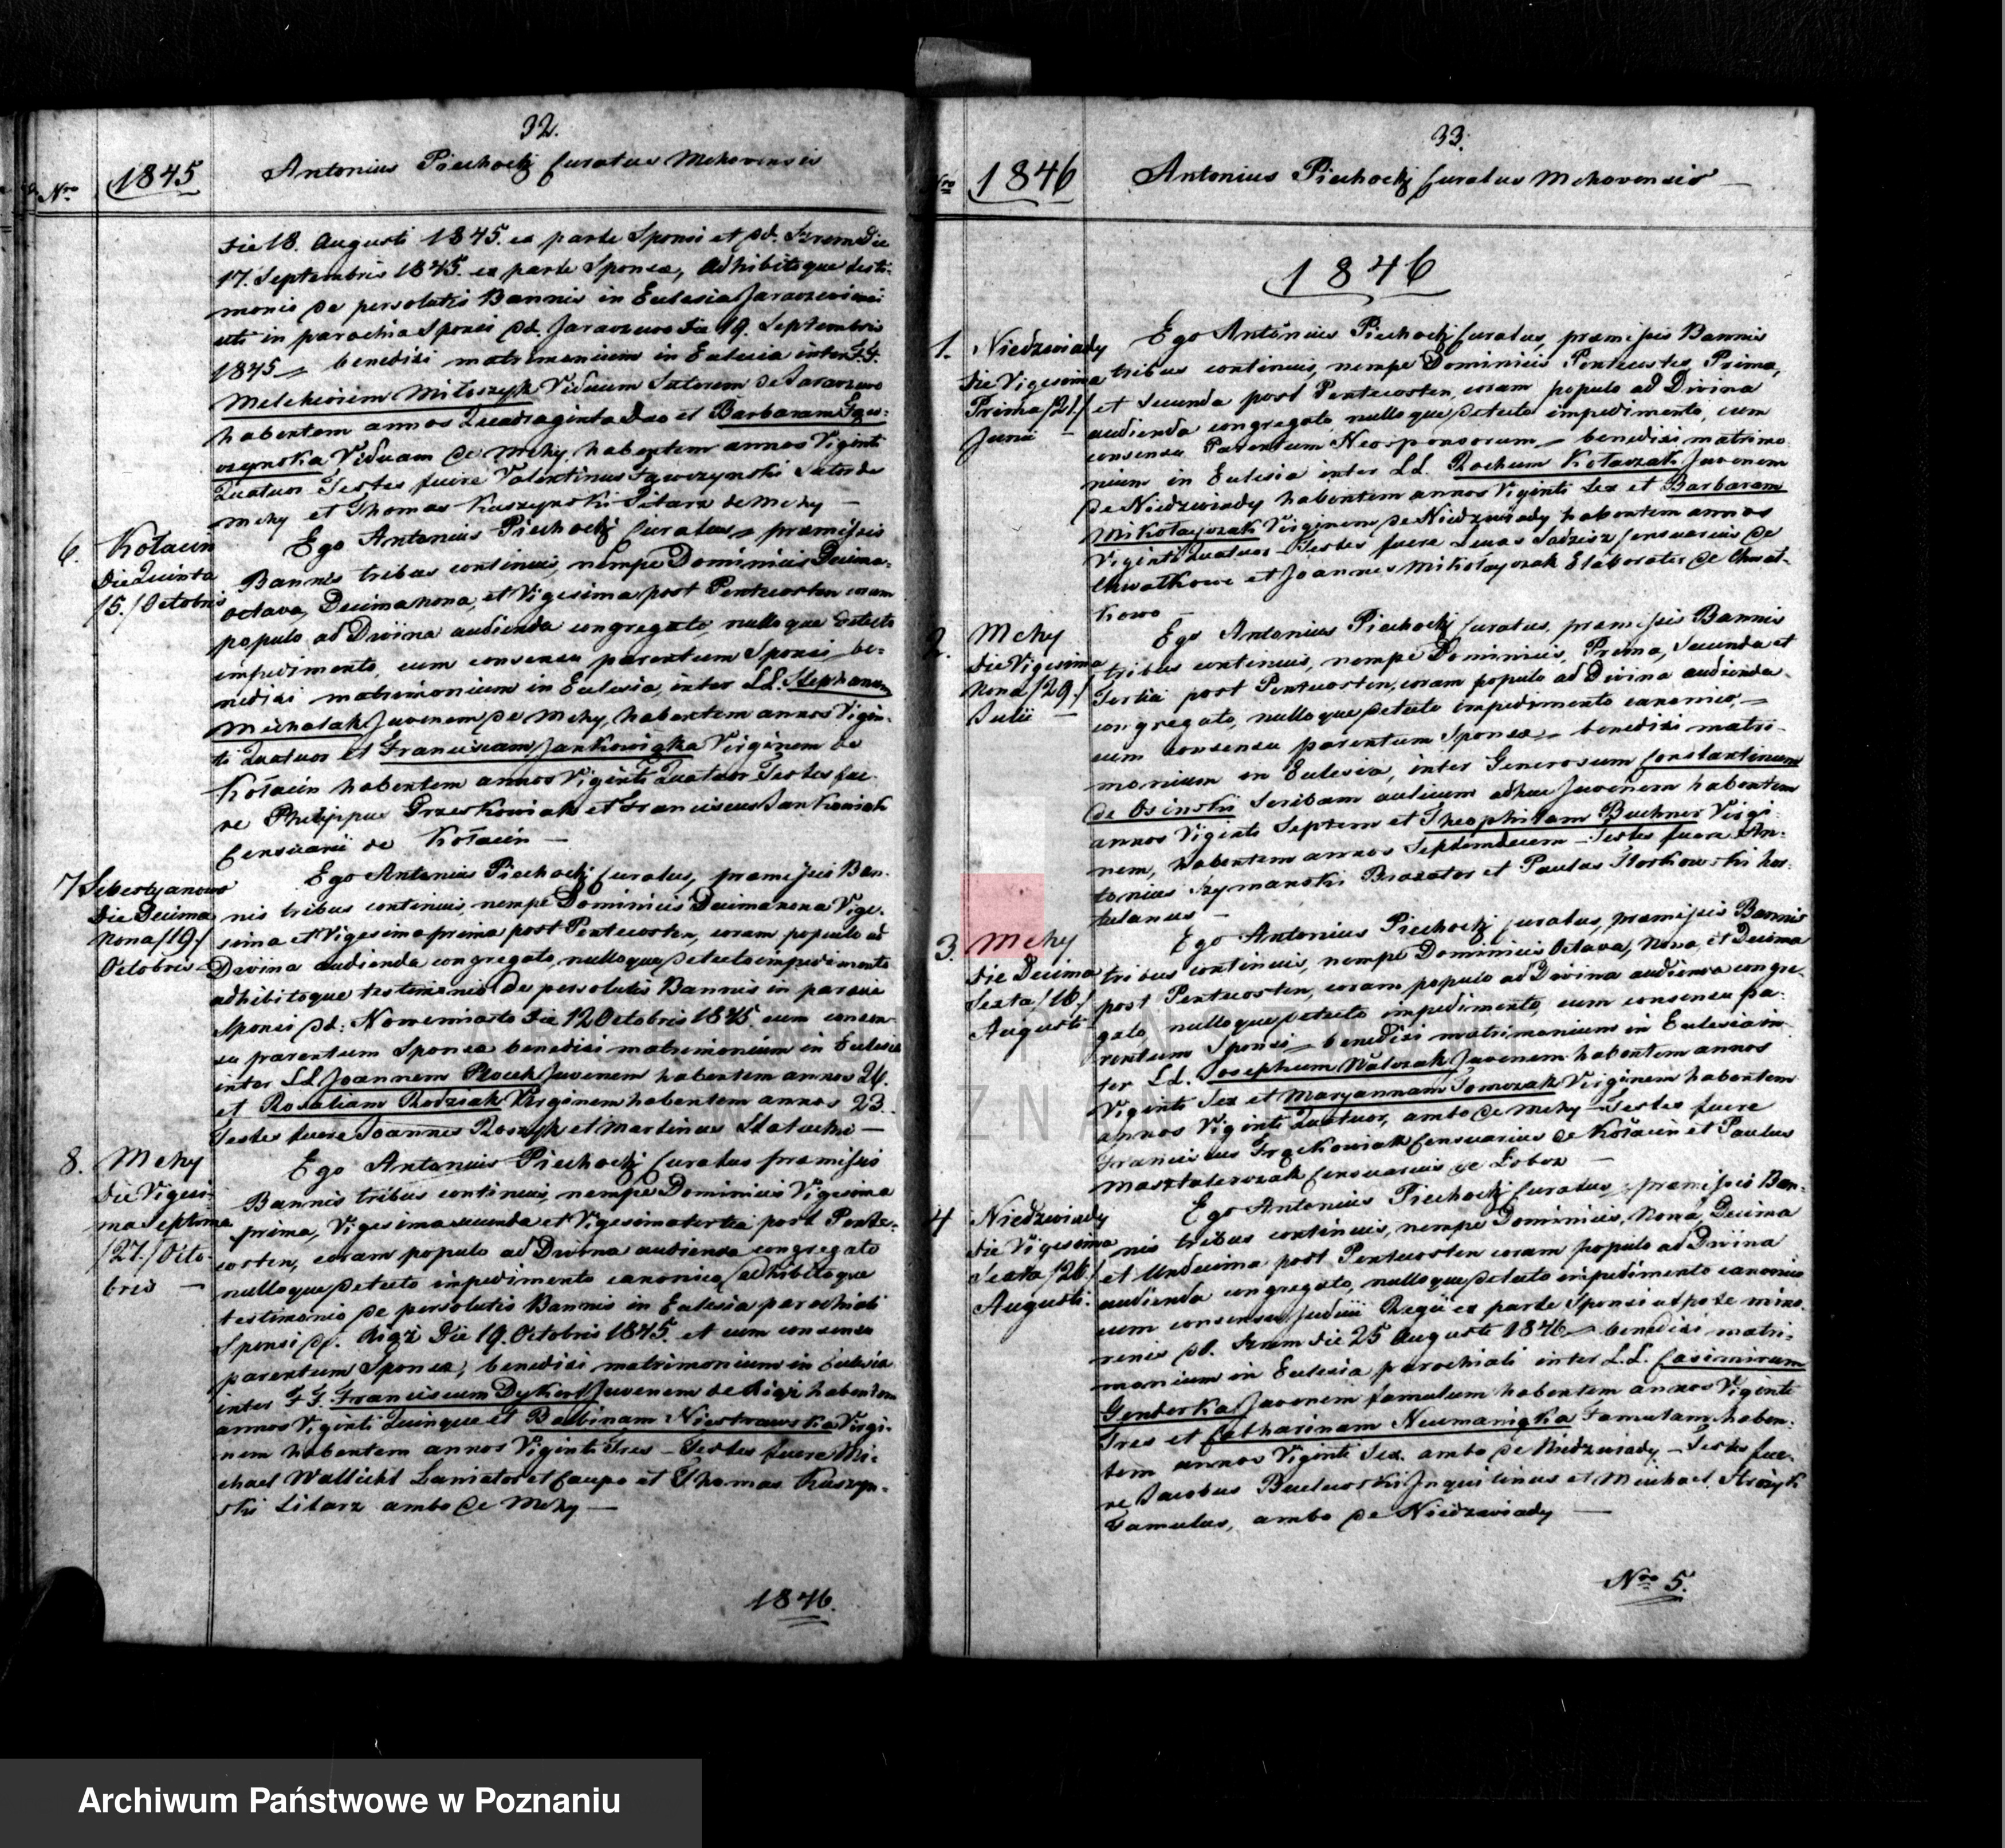 32.
Nro 1845 Antonius Piechocki Curatus Mchovensis
die 18. Augusti 1845. ex parte Sponsi et dd. Szrem die
17. Septembris 1845. ex parte Sponsæ, adhibitoque testi-
monio de persolutis Bannis in Eclesia Jaraczewiensi
uti in parochia Sponsi dd. Jaraczewo die 19. Septembris
1845 benedixi matrimonium in Eclesia inter
Melchiorem Miłoszyk Viduum Sutorem de Jaraczewo
habentem annos Quadraginta duo et Barbaram
Viduam de Mchy, habentem annos Viginti
Quatuor Testes fuere Valentinus
Mchy et Thomas Kuszynski de Mchy
6. Kołacin
die Quinta
/5./ Octobris
Ego Antonius Piechocki Curatus præmissis
Bannis tribus continuis, nempe Dominicis Decima-
octava, Decima nona, et Vigesima post Pentecosten coram
populo ad Divina audienda congregato, nulloque detecto
impedimento, cum consensu parentum Sponsi be-
nedixi matrimonium in Eclesia, inter LL. Stephanum
Michalak Juvenem de Mchy, habentem annos Vigin-
ti Quatuor et Franciscam Jankowiązka Virginem de
Kołacin habentem annos Viginti Quatuor Testes fue-
re Philippus Grzeskowiak et Franciscus Jankowiak
Censuarii de Kołacin
7 Sebastyanowo
die Decima
nona /19./
Octobris
Ego Antonius Piechocki Curatus, præmissis Ban-
nis tribus continuis, nempe Dominicis Decima nona Vige-
sima et Vigesima prima post Pentecosten, coram populo ad
Divina audienda congregato, nulloque detecto impedimento
adhibitoque testimonio de persolutis Bannis in
Sponsi dd: Nowemiasto die 12 Octobris 1845. cum consen-
su parentum Sponsæ benedixi matrimonium in Eclesia
inter LL Joannem Juvenem habentem annos 24.
et Rosaliam Rodziak Virginem habentem annos 23.
Testes fuere Joannes et Martinus
8. Mchy
die Vigesi-
ma Septima
/27./ Octo-
bris
Ego Antonius Piechocki Curatus præmissis
Bannis tribus continuis, nempe Dominicis Vigesima
prima, Vigesima secunda et Vigesima tertia post Pente-
costen, coram populo ad Divina audienda congregato
nulloque detecto impedimento canonico, adhibitoque
testimonio de persolutis Bannis in Eclesia parochiali
Sponsi dd. die 19. Octobris 1845. et cum consensu
parentum Sponsæ, benedixi matrimonium in Eclesia
inter Franciscum Dykert Juvenem de habentem
annos Viginti Quinque et Balbinam Niestrawska Virgi-
nem habentem annos Viginti Tres - Testes fuere Mi-
chael Laniator et Caupo et Thomas Kuszyn-
ski ambo de Mchy
1846.
33.
Nro 1846 Antonius Piechocki Curatus Mchovensis
1846
1. Niedzwiady
die Vigesima
Prima /21./
Junii
Ego Antonius Piechocki Curatus, præmissis Bannis
tribus continuis, nempe Dominicis Pentecostes, Prima,
et Secunda post Pentecosten, coram populo ad Divina
audienda congregato, nulloque detecto impedimento, cum
consensu Parentum Neosponsorum benedixi matrimo-
nium in Eclesia inter LL. Rochum Kołaszak Juvenem
de Niedzwiady habentem annos Viginti Sex et Barbaram
Mikołayczak Virginem de Niedzwiady habentem annos
Viginti Quatuor Testes fuere Lucas Censuarius de
Chwałkowo et Joannes Mikołayczak Elaborator de Chwał-
kowo
2. Mchy
die Vigesima
nona /29./
Julii
Ego Antonius Piechocki Curatus, præmissis Bannis
tribus continuis, nempe Dominicis, Prima, Secunda et
Tertia post Pentecosten, coram populo ad Divina audienda
congregato, nulloque detecto impedimento canonico,
cum consensu parentum Sponsæ benedixi matri-
monium in Eclesia, inter Generosum Constantinum
de Osinski Scribam aulicum adhuc Juvenem habentem
annos Viginti Septem et Theophilam Buchner Virgi-
nem, habentem annos Septemdecem Testes fuere An-
tonius Szymanski Braxator et Paulus Storkowski hor-
tulanus
3. Mchy
die Decima
Sexta /16./
Augusti
Ego Antonius Piechocki Curatus, præmissis Bannis
tribus continuis, nempe Dominicis Octava, Nona, et Decima
post Pentecosten, coram populo ad Divina audienda congre-
gato nulloque detecto impedimento, cum consensu pa-
rentum Sponsi benedixi matrimonium in Eclesia in-
ter LL. Josephum Walczak Juvenem habentem annos
Viginti Sex et Maryannam Tomczak Virginem habentem
annos Viginti Quatuor, ambo de Mchy Testes fuere
Franciscus Frąckowiak Censuarius de Kołacin et Paulus
Masztalerzak Censuarius de
4 Niedzwiady
die Vigesima
Sexta /26./
Augusti.
Ego Antonius Piechocki Curatus, præmissis Ban-
nis tribus continuis, nempe Dominicis, Nona, Decima
et Undecima post Pentecosten coram populo ad Divina
audienda congregato, nulloque detecto impedimento canonico
cum consensu Judicii Regii ex parte Sponsi utpote mino-
renis dd. Szrem die 25 Augusti 1846 benedixi matri-
monium in Eclesia parochiali inter L.L. Casimirum
Genderka Juvenem famulum habentem annos Viginti
Tres et Catharinam Neumaniązka Famulam haben-
tem annos Viginti Sex. ambo de Niedzwiady Testes fue-
re Jacobus Inquilinus et Michael Strózyk
Famulus, ambo de Niedzwiady
Nro 5.
Archiwum Państwowe w Poznaniu